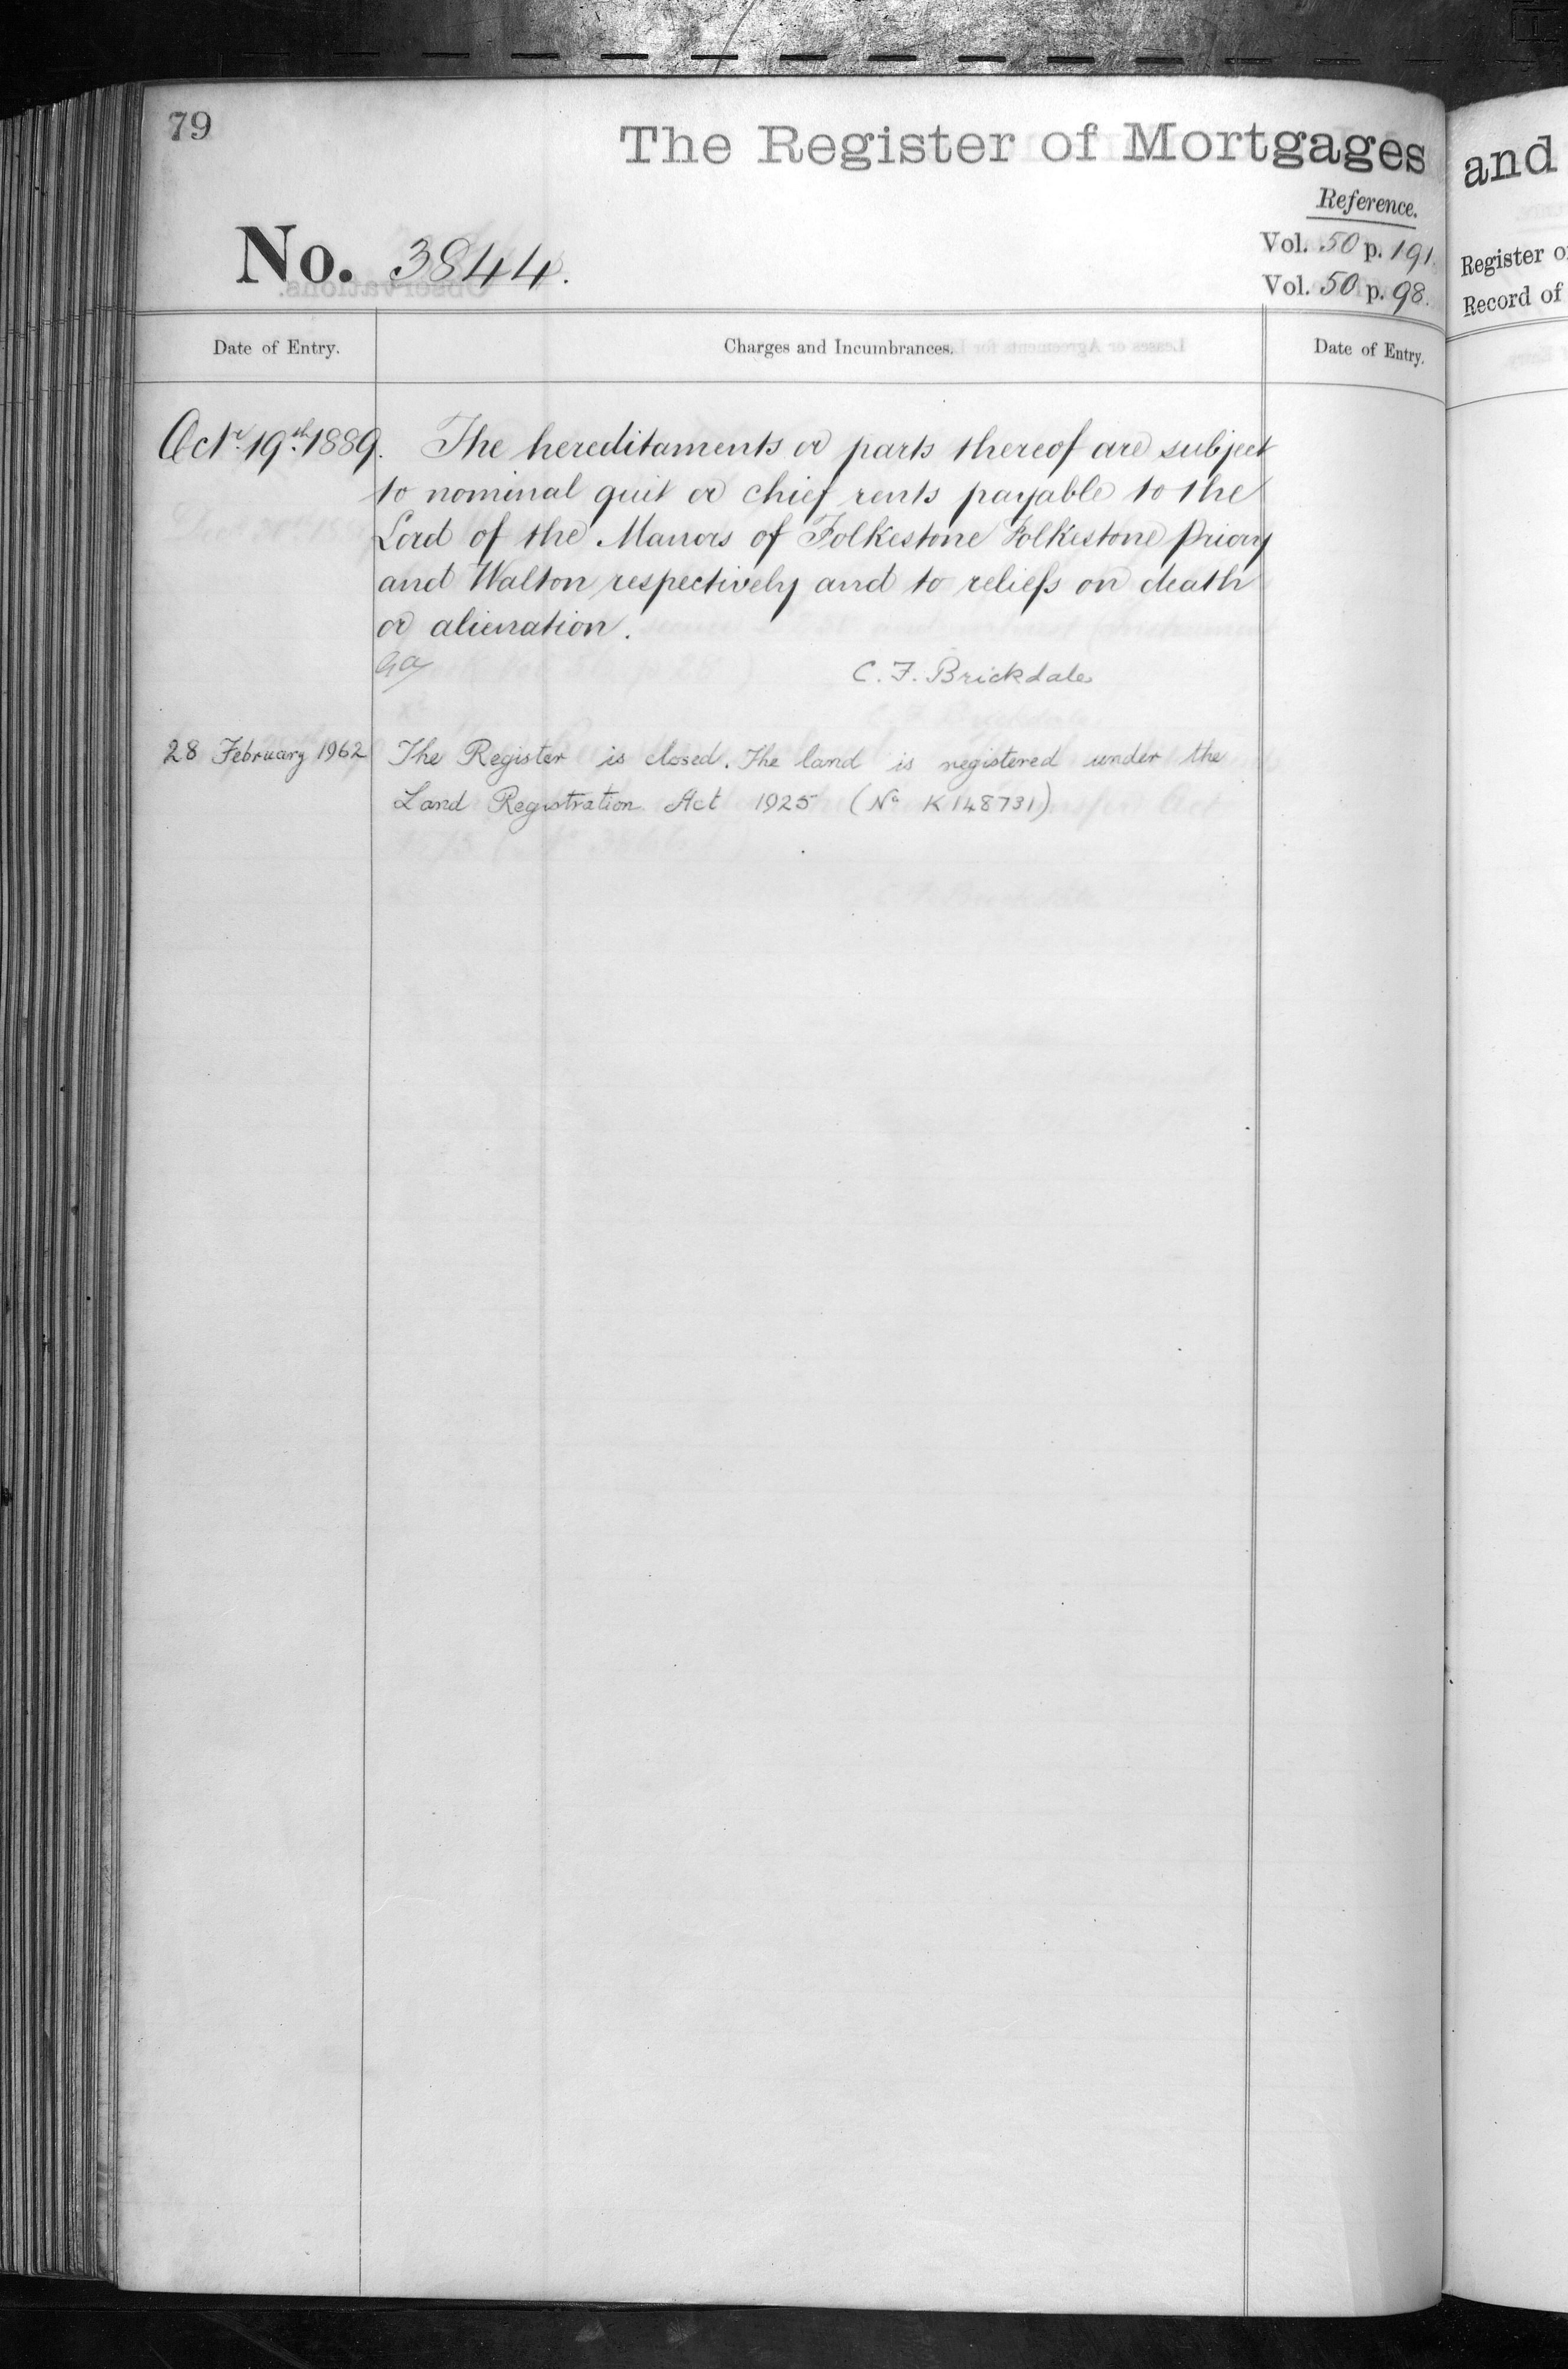 79
The Register of Mortgages
and
Reference.
No. 3844.
Vol. 50 p. 191.
Register
Vol. 50 p. 98.
Record of
Date of Entry.
Charges and Incumbrances.
Date of Entry.
Octr. 19th 1889.
The hereditaments or parts thereof are subject
to nominal quit or chief rents payable to the
Lord of the Manors of Folkestone Folkestone Priory
and Walton respectively and to reliefs on death
or alienation.
C. F. Brickdale
28 February 1962
The Register is closed. The land is registered under the
Land Registration Act 1925 (No K148731)